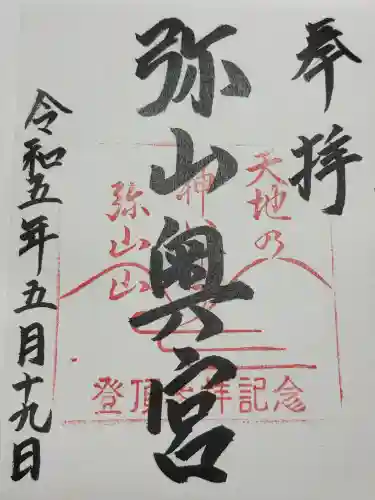 奉拝
天地の
神
弥山山
弥山奥宮
登頂 拝記念
令和五年五月十九日